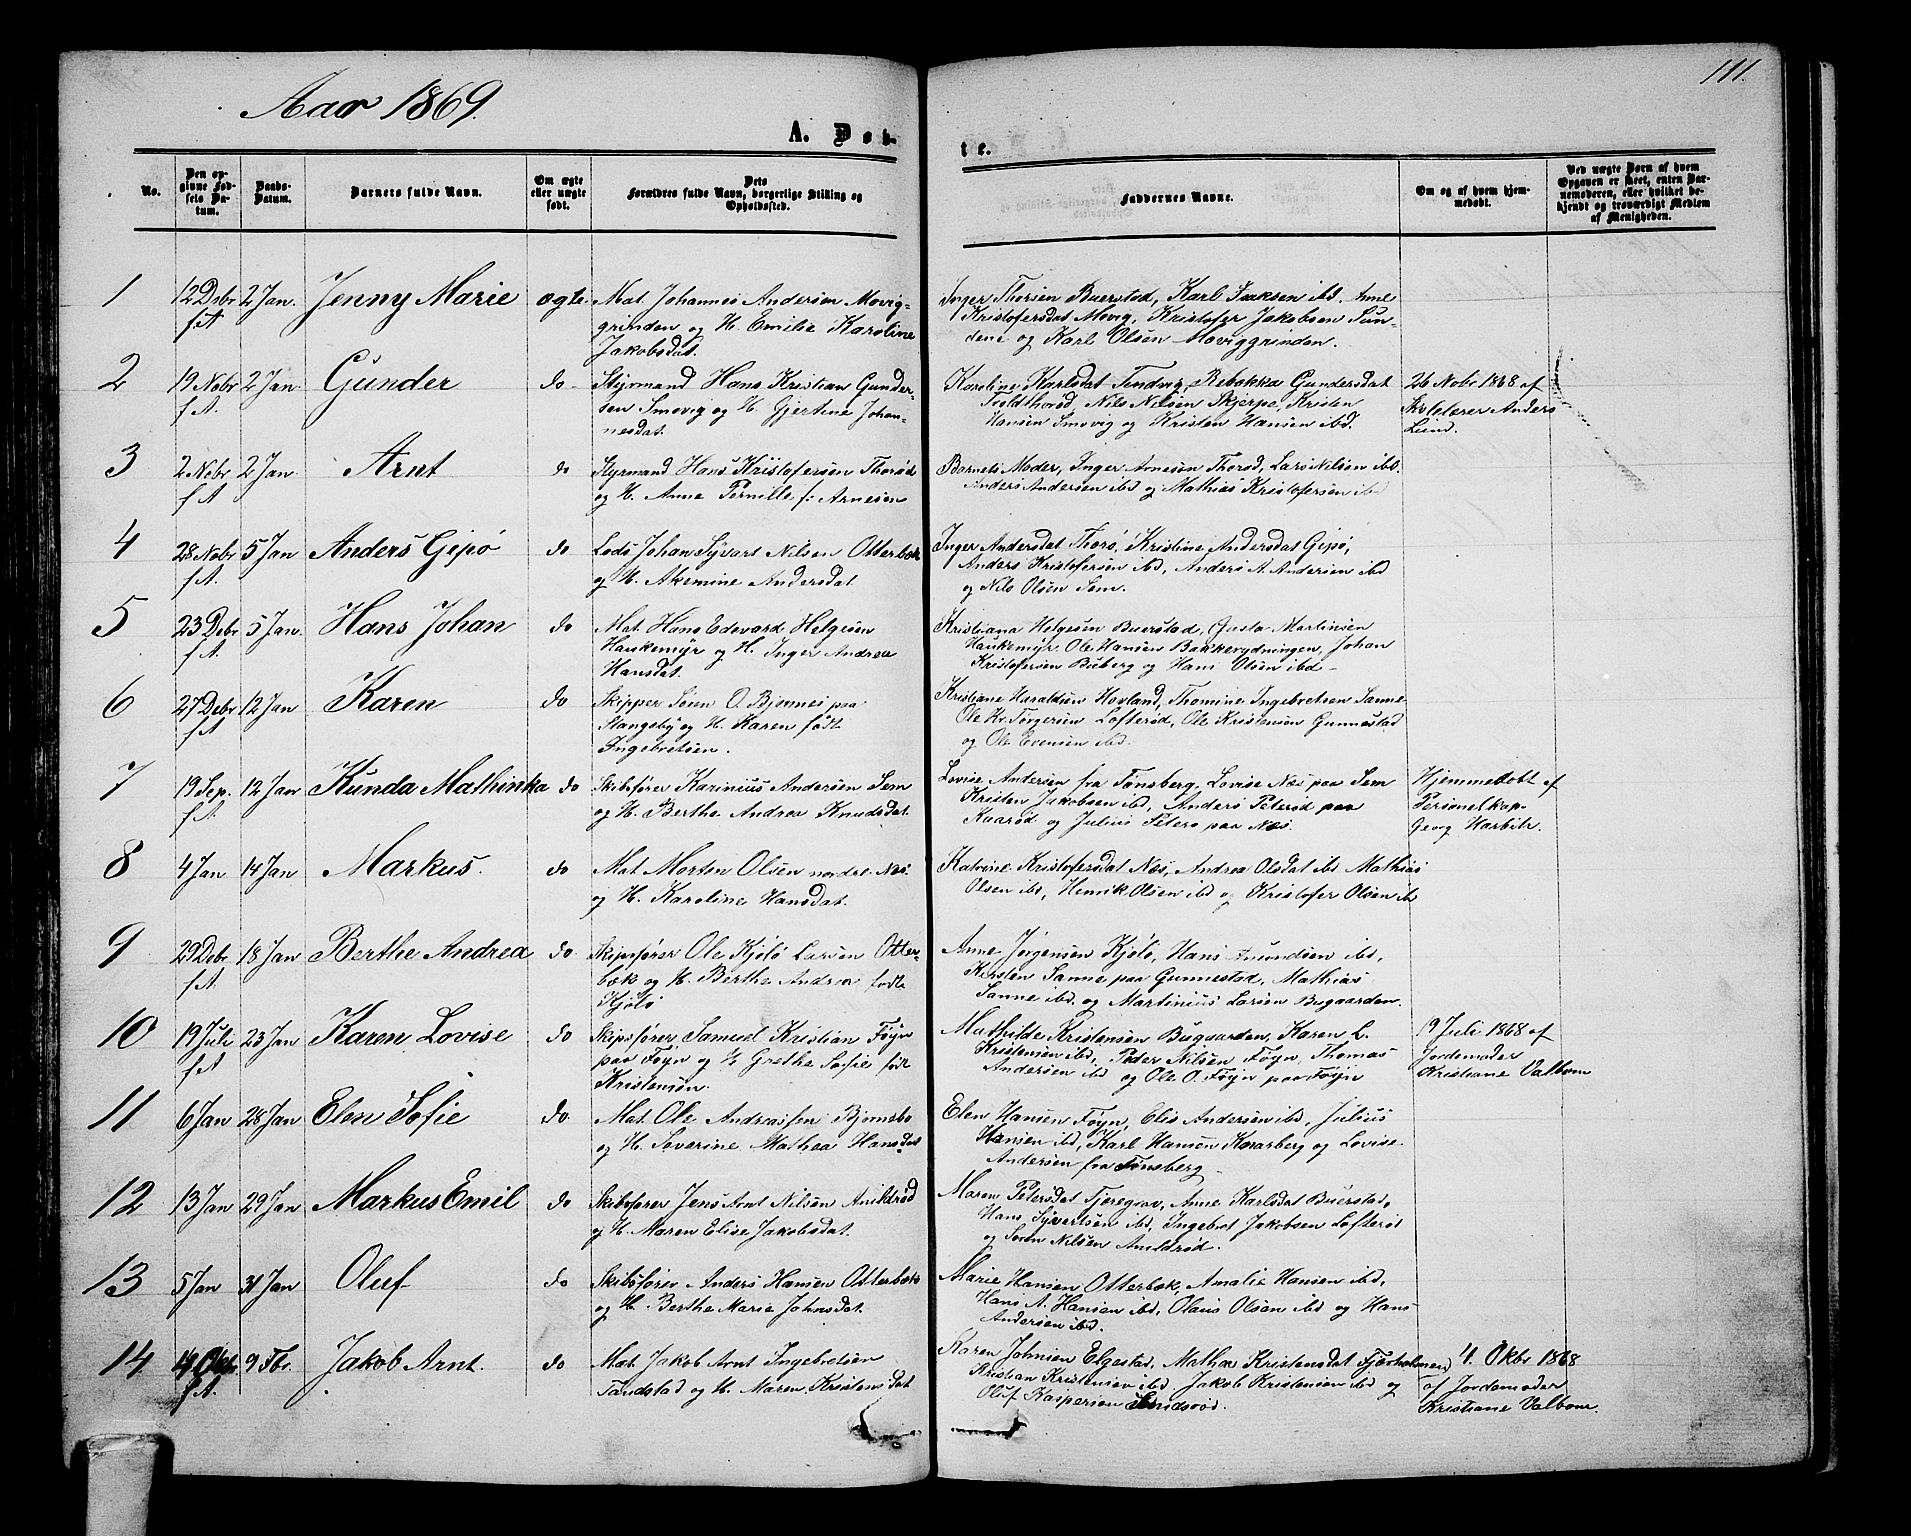 111.
Aar 1869.
A. Døb-
te.
No.
Den op-
givne Fød-
sels Da-
tum.
Daabs-
Datum.
Barnets fulde Navn.
Om ægte
eller uægte
født.
Dets
Forældres fulde Navn, borgerlige Stilling og
Opholdssted.
Faddernes Navne.
Om og af hvem hjem-
medøbt.
Ved uægte Børn af hvem
Opgaven er skeet, enten Bar-
nemoderen, eller hvilket be-
kjendt og troværdigt Medlem
af Menigheden.
1 12 Debr 2 Jan. Jenny Marie ægte. Mat. Johannes Andersen Movig- Inger Thorsen Buerstad, Karl Isaksen ibd. Anne
f A. grinden og H. Emilie Karoline Kristofersdat Movig, Kristofer Jakobsen Sun-
Jakobsdat. dene og Karl Olsen Moviggrinden.
2 19 Nobr 2 Jan. Gunder do Styrmand Hans Kristian Gunder- Karoline Karlsdat Tendvig, Rebekka Gundersdat 26 Nobr 1868 af
f A. sen Smovig og H. Gjertine Johan- Toldthorød, Nils Nilsen Skjerpe, Kristen Skolelærer Anders
nesdat. Hansen Smovig og Kristen Hansen ibd. Lund.
3 2 Nobr 2 Jan Arnt do Styrmand Hans Kristofersen Thorød Barnets Moder, Inger Arnesen Thorød, Lars Nilsen ibd.
f A. og H. Anne Pernille f: Arnesen Anders Andersen ibd og Mathias Kristofersen ibd
4 28 Nobr 5 Jan Anders Gipø do Lods Johan Syvart Nilsen Otterbæk Inger Andersdat Thorø, Kristine Andersdat Gipø,
f A. og H. Akemine Andersdat Anders Kristofersen ibd, Anders A. Andersen ibd
og Nils Olsen Sem.
5 23 Debr 5 Jan. Hans Johan do Mat. Hans Edevard Helgesen Kristiana Helgesen Buerstad, Gusta Martinsen
f A. Haukemyr og H. Inger Andrea Haukemyr, Ole Hansen Bakkerydningen, Johan
Hansdat. Kristofersen Buberg og Hans Olsen ibd
6 27 Debr 12 Jan Karen do Skipper Søren O. Bjønnes paa Kristiane Haraldsen Hovland, Thomine Ingebretsen Sanne
f A. Stangeby og H. Karen født Ole Kr. Torgersen Lofterød, Ole Kristensen Gunnestad
Ingebretsen. og Ole Evensen ibd.
7 19 Sep. 12 Jan Kunda Mathinka do Skibsfører Karinius Andersen Sem Lovise Andersen fra Tønsberg, Lovise Næs paa Sem Hjemmedøbt af
f A. og H. Berthe Andrea Knudsdat. Kristen Jakobsen ibd, Anders Peterød paa Personelkap.
Kaarød og Julius Peters paa Næs. Georg Harbitz.
8 4 Jan 14 Jan Markus. do Mat Morten Olsen nordre Næs. Katrine Kristofersdat Næs, Andrea Olsdat ibd Mathias
og H. Karoline Hansdat. Olsen ibd, Henrik Olsen ibd og Kristofer Olsen ib
9 29 Debr 18 Jan Berthe Andrea do Skipsfører Ole Kjølø Larsen Otter- Anne Jørgensen Kjølø, Hans Amundsen ibd,
f A. bæk og H. Berthe Andrea født Kirsten Sanne paa Gunnestad, Mathias
Kjølø Sanne ibd. og Martinius Larsen Bugaarden.
10 19 Juli 23 Jan Karen Lovise do Skipsfører Samuel Kristian Føyn Mathilde Kristensen Bugaarden, Karen L. 19 Juli 1868 af
f A paa Føyn og H Grethe Sofie født Kristensen ibd, Peder Nilsen Føyn, Thomas Jordemoder
Kristensen. Andersen ibd og Ole O. Føyn paa Føyn Kristiane Valbom
11 6 Jan 28 Jan Elen Sofie do Mat. Ole Andreassen Bjønnebo Elen Hansen Føyn, Elis Andersen ibd, Julius
og H. Severine Mathea Hansdat Hansen ibd, Karl Hansen Kararberg og Lovise
Andersen fra Tønsberg
12 13 Jan 29 Jan Markus Emil do Skibsfører Jens Arnt Nilsen Anildrød Maren Petersdat Tjøregrav, Anne Karlsdat Buerstad,
og H. Maren Elise Jakobsdat. Hans Syvertsen ibd, Ingebret Jakobsen Lofterød
og Søren Nilsen Anildrød.
13 5 Jan 31 Jan Oluf do Skibsfører Anders Hansen Otterbæk Marie Hansen Otterbæk, Amalie Hansen ibd,
og H. Berthe Marie Johnsdat. Hans A. Hansen ibd, Olaus Olsen ibd og Hans
Andersen ibd.
14 4 Okbr 9 Fbr. Jakob Arnt. do Mat. Jakob Arnt Ingebretsen Karen Johnsen Elgestad, Mathea Kristensdat Fjærholmen, 4. Okbr 1868
f A. Sandstad og H. Maren Kristensdat Kristian Kristensen ibd. Jakob Kristensen ibd og af Jordemoder
Oluf Kaspersen Smidsrød. Kristiane Valbom.